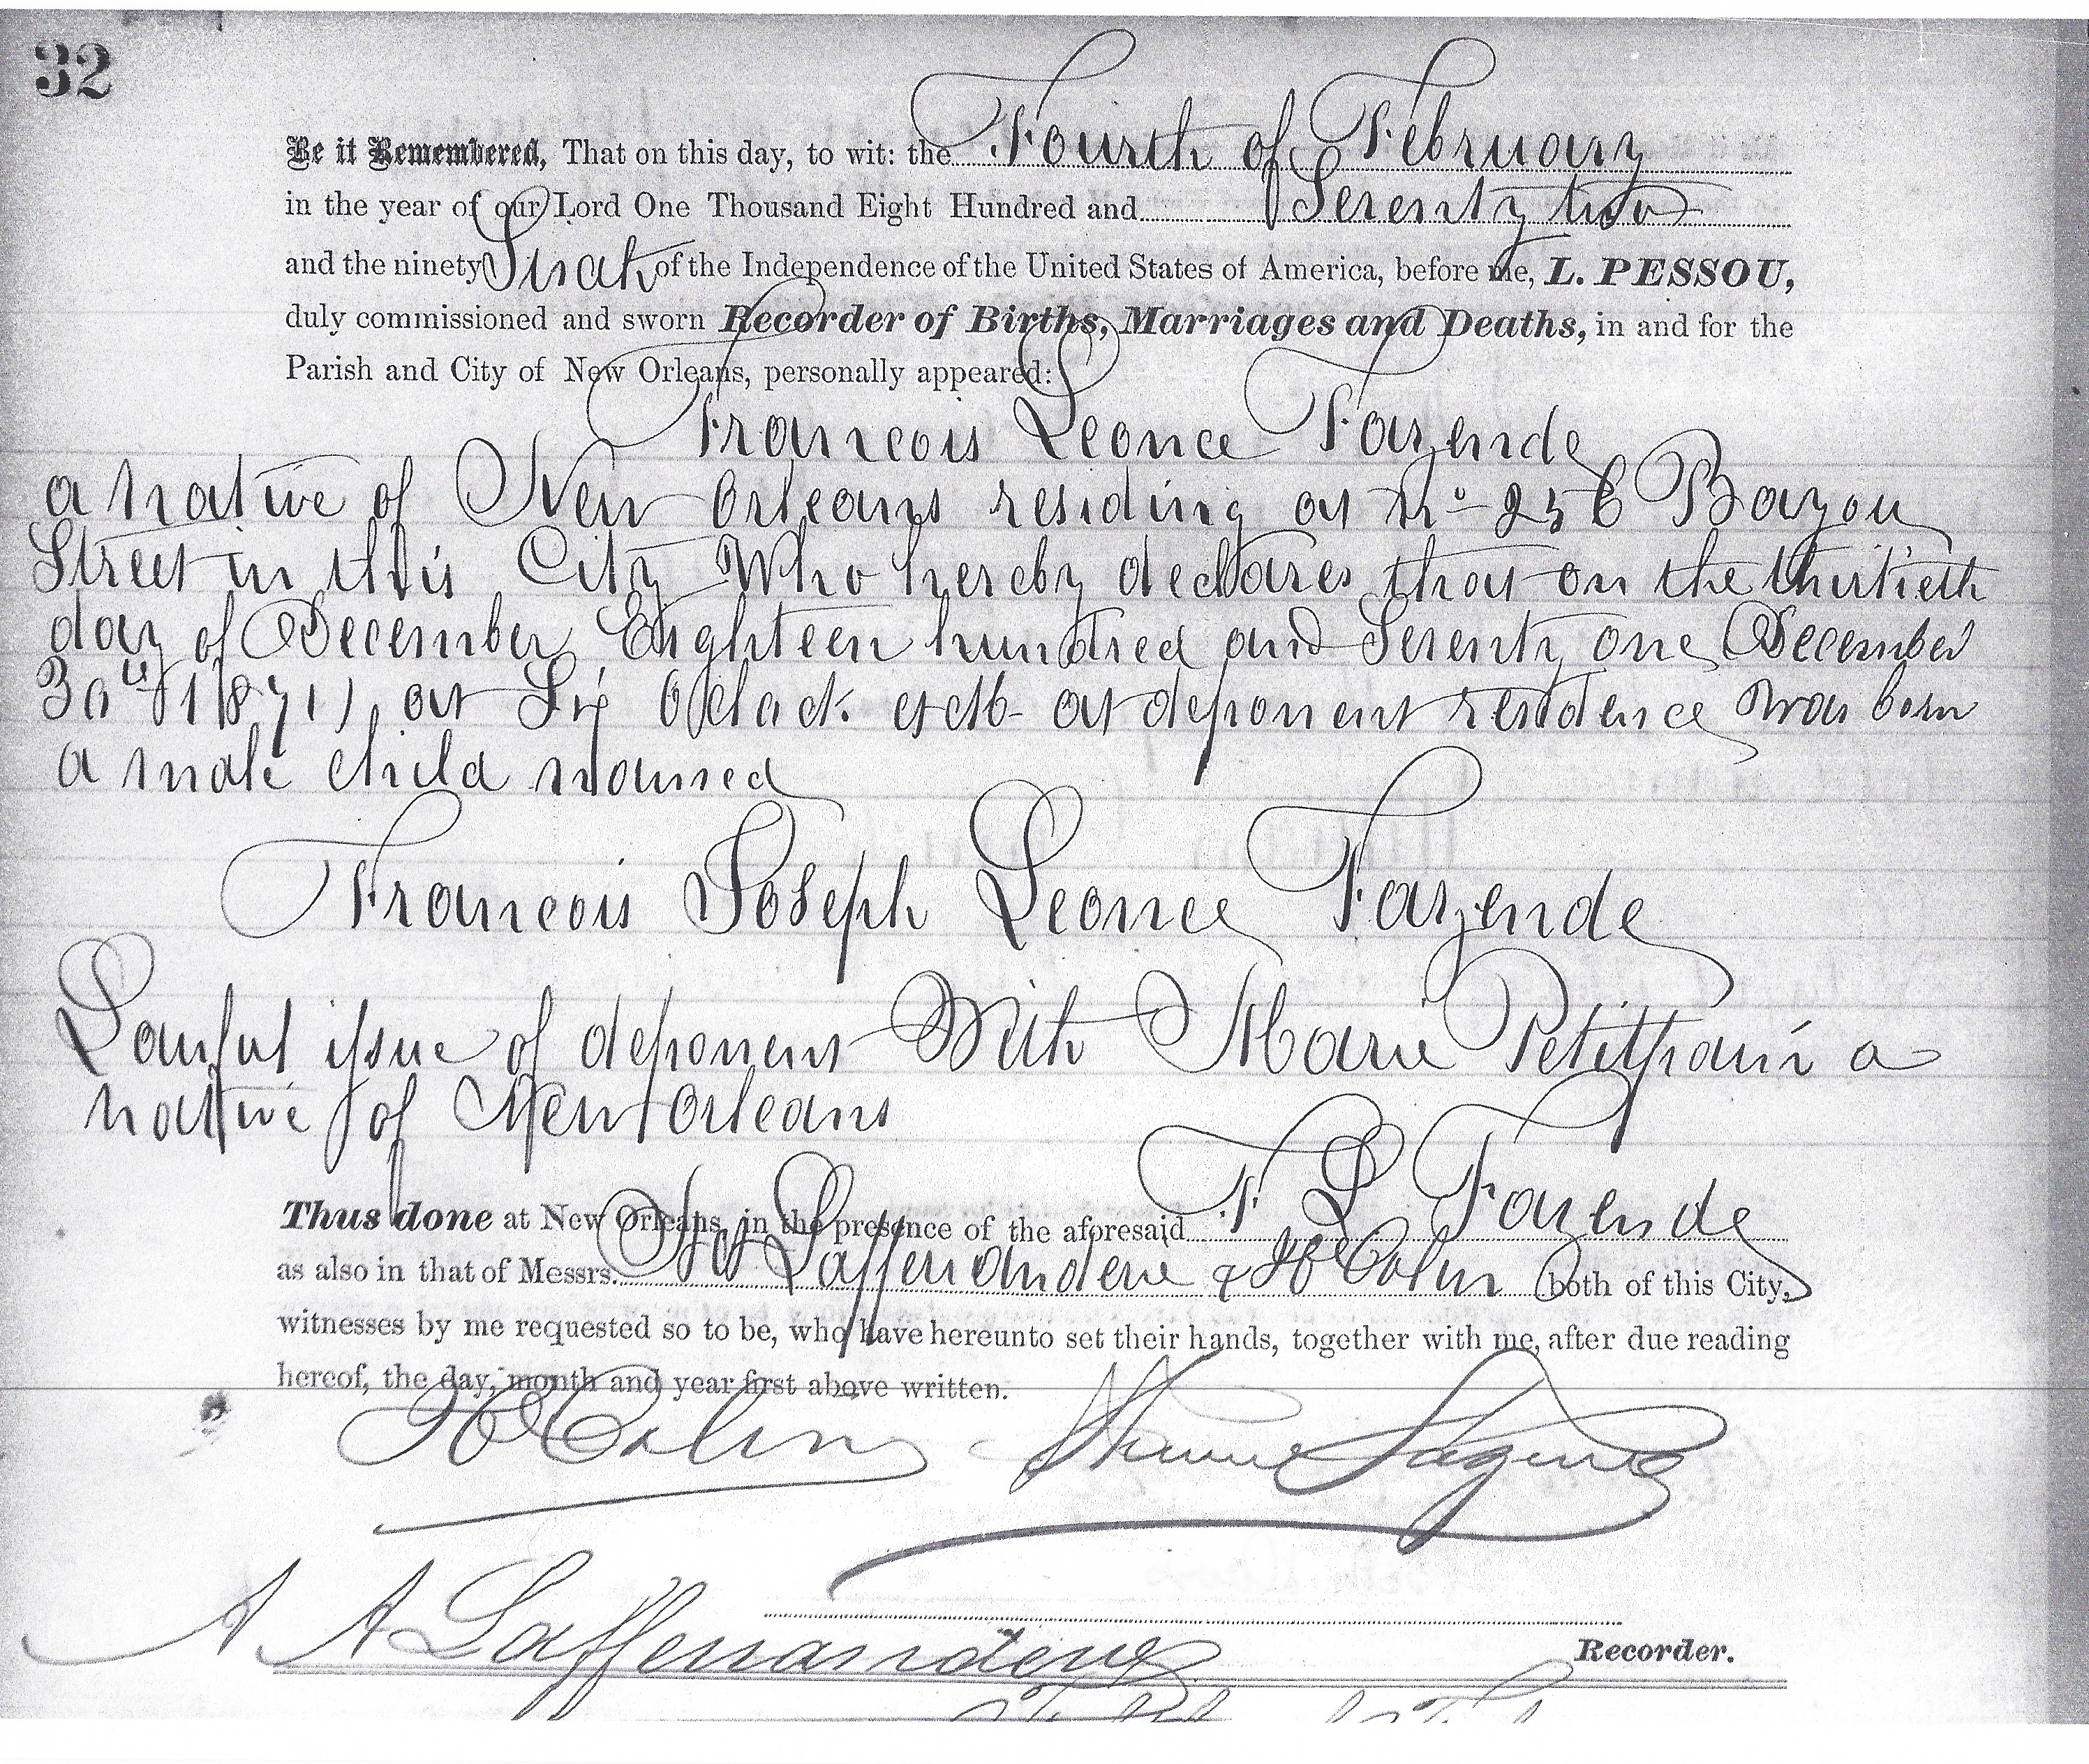 32
Be it Remembered, That on this day, to wit: the Fourth of February
in the year of our Lord One Thousand Eight Hundred and Seventy two
and the ninety Sixth of the Independence of the United States of America, before me, L. PESSOU,
duly commissioned and sworn Recorder of Births, Marriages and Deaths, in and for the
Parish and City of New Orleans, personally appeared:
Francois Leonce Fazende
a native of New Orleans residing at No 256 Bayou
Street in this City Who hereby declares that on the thirtieth
day of December Eighteen hundred and Seventy one (December
30th 1871) at Six Oclock at deponent residence was born
a male child named
Francois Joseph Leonce Fazende
Lawful issue of deponent With Marie Petitpain a
native of New Orleans
Thus done at New Orleans, in the presence of the aforesaid F L Fazende
as also in that of Messrs. Laffenandene & Colin both of this City,
witnesses by me requested so to be, who have hereunto set their hands, together with me, after due reading
hereof, the day, month and year first above written.
Colin
A Laffenandene
Recorder.